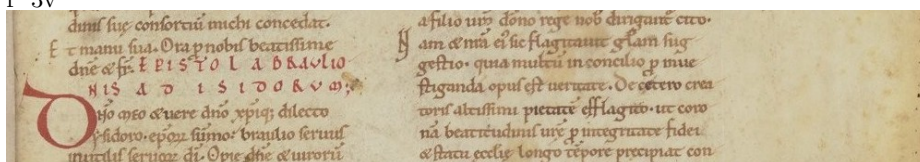 dinis suę consortiū michi concedat.
Et manu sua. Ora ꝑ nobis beatissime
dn̄e & fr̄. EPISTOLA BRAVLIO
NIS AD ISIDORVM;
Dn̄o meo & uere dn̄o xp̄iq; dilecto
ysidoro. ep̄oꝝ sūmo: braulio seruus
inutilis seruoꝝ dī. Opie dn̄e & uiroꝝ
a filio urō dono rege nob̄ dirigant̄ cito.
Nam & nrā eī sic flagitauit glam̄ sug
gestio. quia multū in concilio ꝑ inue
stiganda opus est ueritate. De cętero crea
toris altissimi pietatē efflagito. ut coro
nā beatitudinis urę ꝑ integritate fidei
& statu ecclię longo tēpore precipiat con